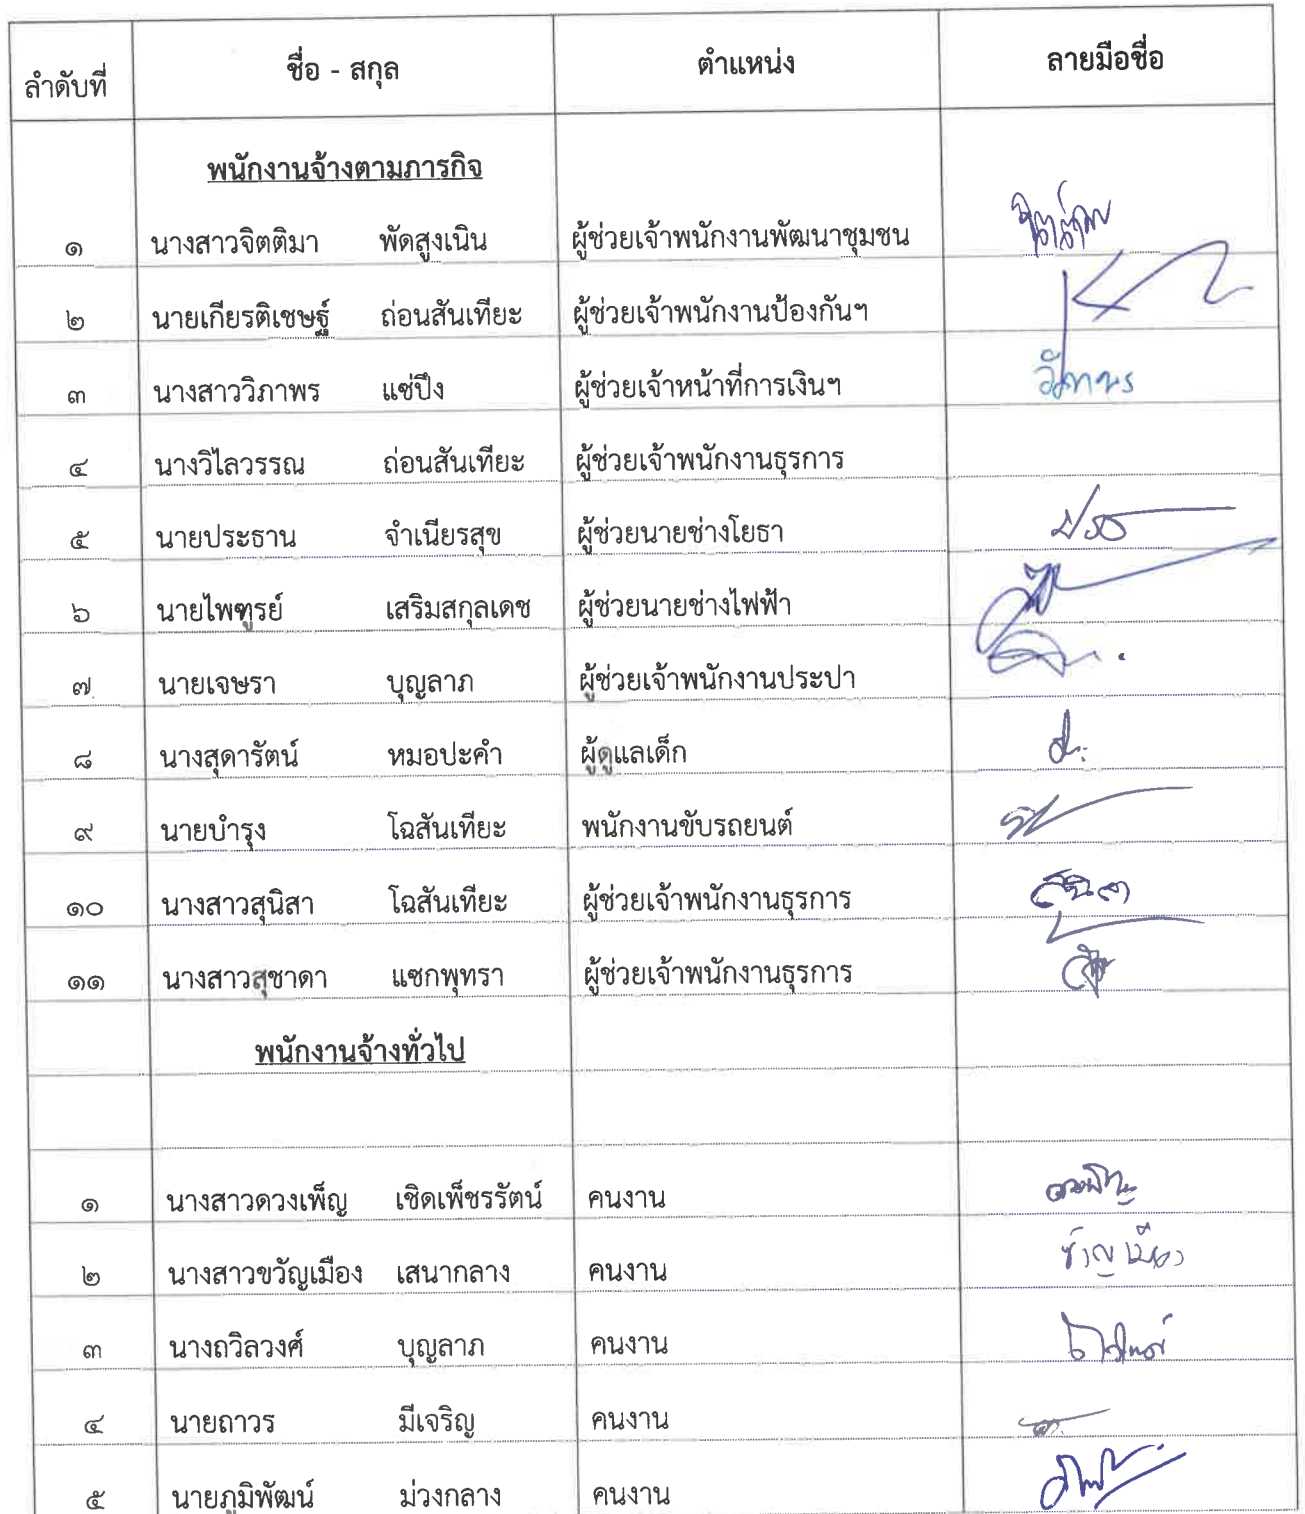 ลำดับที่ ชื่อ - สกุล ตำแหน่ง ลายมือชื่อ
พนักงานจ้างตามภารกิจ
๑ นางสาวจิตติมา พัดสูงเนิน ผู้ช่วยเจ้าพนักงานพัฒนาชุมชน
๒ นายเกียรติเชษฐ์ ถ่อนสันเทียะ ผู้ช่วยเจ้าพนักงานป้องกันฯ
๓ นางสาววิภาพร แซ่ปึง ผู้ช่วยเจ้าหน้าที่การเงินฯ วิภาพร
๔ นางวิไลวรรณ ถ่อนสันเทียะ ผู้ช่วยเจ้าพนักงานธุรการ
๕ นายประธาน จำเนียรสุข ผู้ช่วยนายช่างโยธา
๖ นายไพฑูรย์ เสริมสกุลเดช ผู้ช่วยนายช่างไฟฟ้า
๗ นายเจษรา บุญลาภ ผู้ช่วยเจ้าพนักงานประปา
๘ นางสุดารัตน์ หมอปะคำ ผู้ดูแลเด็ก
๙ นายบำรุง โฉสันเทียะ พนักงานขับรถยนต์
๑๐ นางสาวสุนิสา โฉสันเทียะ ผู้ช่วยเจ้าพนักงานธุรการ
๑๑ นางสาวสุชาดา แซกพุทรา ผู้ช่วยเจ้าพนักงานธุรการ
พนักงานจ้างทั่วไป
๑ นางสาวดวงเพ็ญ เชิดเพ็ชรรัตน์ คนงาน
๒ นางสาวขวัญเมือง เสนากลาง คนงาน ขวัญเมือง
๓ นางถวิลวงศ์ บุญลาภ คนงาน
๔ นายถาวร มีเจริญ คนงาน
๕ นายภูมิพัฒน์ ม่วงกลาง คนงาน